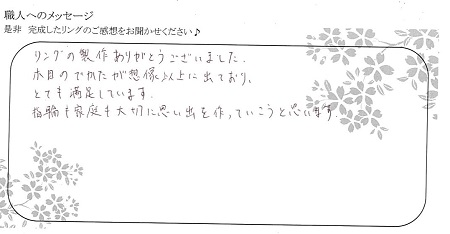 職人へのメッセージ
是非 完成したリングのご感想をお聞かせください♪
リングの製作ありがとうございました。
木目のでかたが想像以上に出ており、
とても満足しています。
指輪も家庭も大切に思い出を作っていこうと思います。